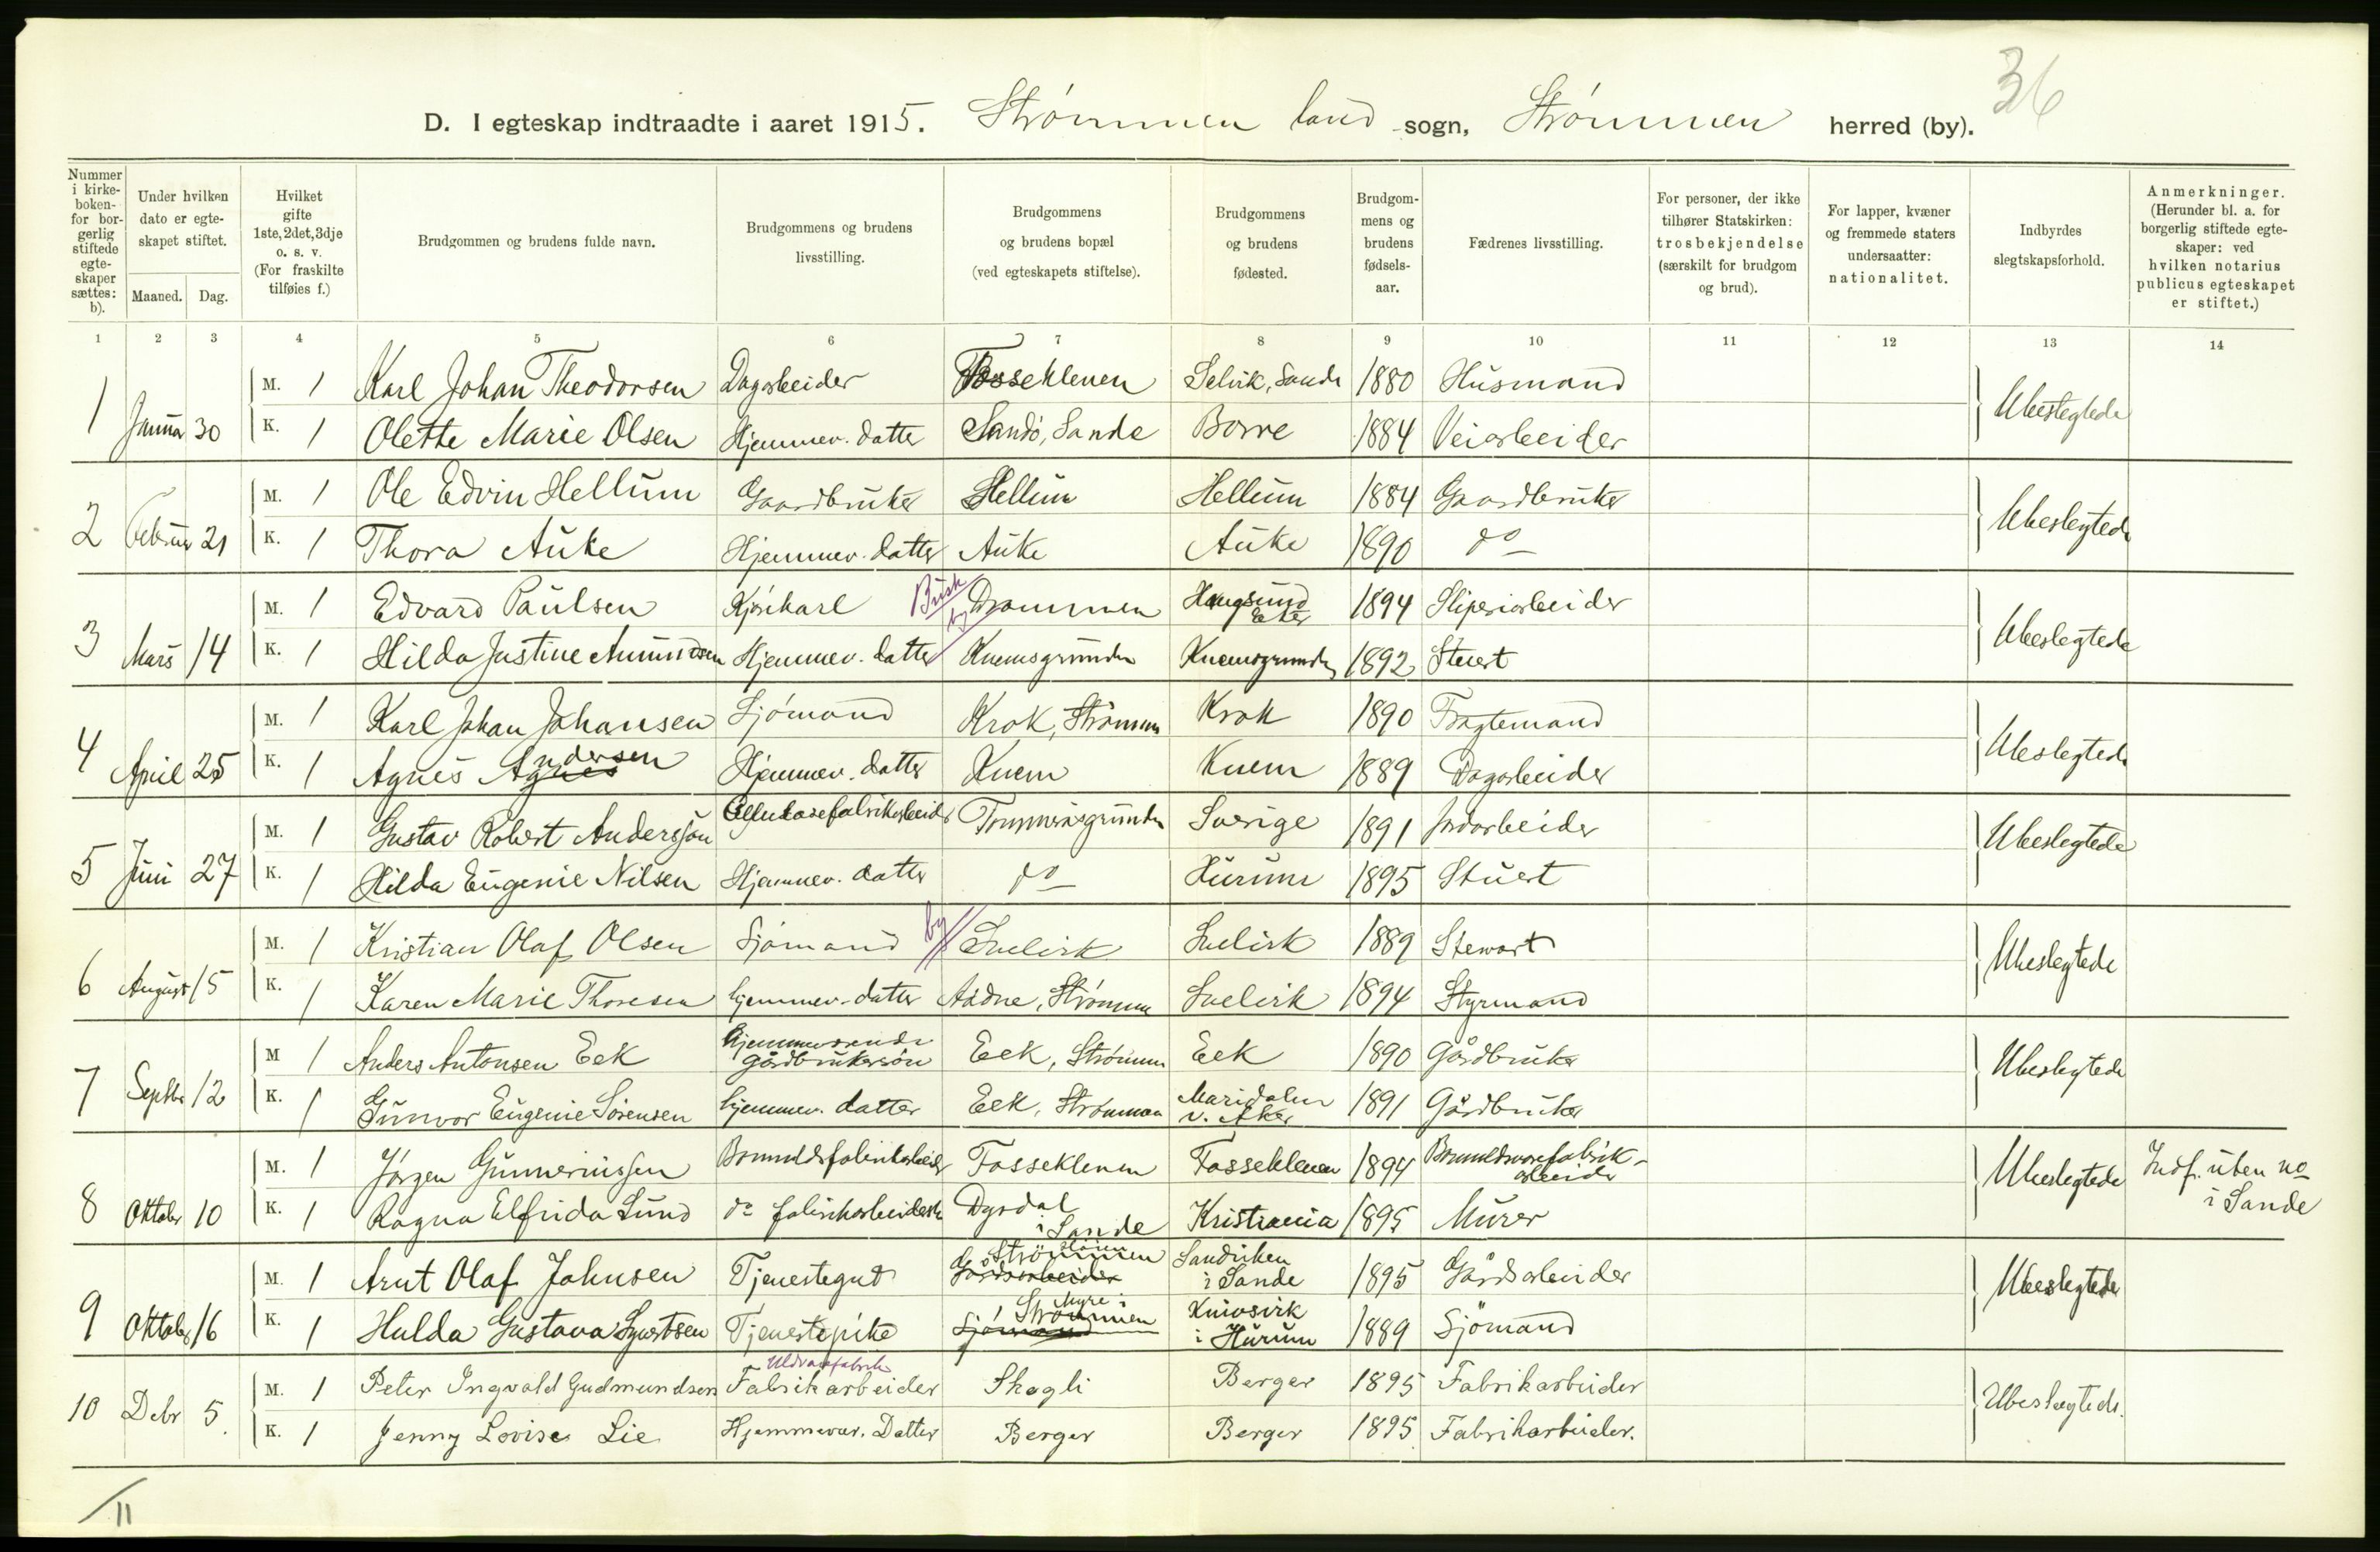 36
D. I egteskap indtraadte i aaret 1915. Strømmen land sogn, Strømmen herred (by).
Nummer i kirkeboken- for borgerlig stiftede egteskaper sættes: b).
Under hvilken dato er egteskapet stiftet.
Maaned. Dag.
Hvilket gifte 1ste, 2det, 3dje o. s. v. (For fraskilte tilføies f.)
Brudgommen og brudens fulde navn.
Brudgommens og brudens livsstilling.
Brudgommens og brudens bopæl (ved egteskapets stiftelse).
Brudgommens og brudens fødested.
Brudgommens og brudens fødselsaar.
Fædrenes livsstilling.
For personer, der ikke tilhører Statskirken: trosbekjendelse (særskilt for brudgom og brud).
For lapper, kvæner og fremmede staters undersaatter: nationalitet.
Indbyrdes slegtskapsforhold.
Anmerkninger. (Herunder bl. a. for borgerlig stiftede egteskaper: ved hvilken notarius publicus egteskapet er stiftet.)
1 2 3 4 5 6 7 8 9 10 11 12 13 14
1 Januar 30 M. 1 Karl Johan Theodorsen Dagarbeider Fosseklenen Selvik, Sande 1880 Husmand Ubeslegtede
K. 1 Olette Marie Olsen Hjemmev. datter Sandø, Sande Borre 1884 Veiarbeider
2 Februar 21 M. 1 Ole Edvin Hellum Gaardbruker Hellum Hellum 1884 Gaardbruker Ubeslegtede
K. 1 Thora Auke Hjemmev. datter Auke Auke 1890 do
3 Mars 14 M. 1 Edvard Paulsen Kjørekarl Busk by Drammen Haugsund Eker 1894 Sliperiarbeider Ubeslegtede
K. 1 Hilda Justine Amundsen Hjemmev. datter Knemsgrunden Knemsgrunden 1892 Stuert
4 April 25 M. 1 Karl Johan Johansen Sjømand Krok, Strømmen Krok 1890 Fragtemand Ubeslegtede
K. 1 Agnes Andersen Hjemmev. datter Knem Knem 1889 Dagarbeider
5 Juni 27 M. 1 Gustav Robert Andersson Cellulosefabrikarbeider Tømmeråsgrunden Sverige 1891 Jordarbeider Ubeslegtede
K. 1 Hilda Eugenie Nilsen Hjemmev. datter do Hurum 1895 Stuert
6 August 15 M. 1 Kristian Olaf Olsen Sjømand by Svelvik Svelvik 1889 Stewart Ubeslegtede
K. 1 Karen Marie Thoresen hjemmev. datter Aadne, Strømmen Svelvik 1894 Styrmand
7 Septbr 12 M 1 Anders Antonsen Eek hjemmeværende gårdbrukersøn Eek, Strømmen Eek 1890 Gårdbruker Ubeslegtede
K. 1 Gunvor Eugenie Sørensen hjemmev. datter Eek, Strømmen Maridalen v. Aker 1891 Gårdbruker
8 Oktober 10 M. 1 Jørgen Gunneriussen Bomuldsfabrikarbeider Fosseklenen Fosseklenen 1894 Bomuldsvarefabrikarbeider Ubeslegtede Indf. uten no i Sande
K. 1 Ragna Elfrida Lund do fabrikarbeiderske Dyrdal i Sande Kristiania 1895 Murer
9 Oktober 16 M. 1 Arnt Olaf Johnsen Tjenestegut Strømmen Gårdsarbeider Sandviken i Sande 1895 Gårdsarbeider Ubeslegtede
K. 1 Hulda Gustava Syvertsen Tjenestepike Myre i Strømmen Sjømand Knivsvik i Hurum 1889 Sjømand
10 Debr 5. M. 1 Peter Ingvald Gudmundsen Uldvarefabrik Fabrikarbeider Skogli Berger 1895 Fabrikarbeider Ubeslegtede.
K. 1 Jenny Lovise Lie Hjemmevær. Datter Berger Berger 1895 Fabrikarbeider.
11